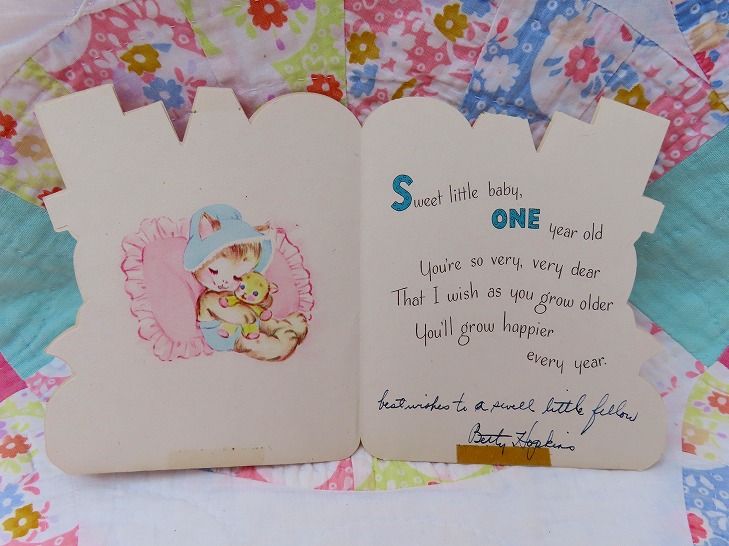 Sweet little baby,
ONE year old
You're so very, very dear
That I wish as you grow older
You'll grow happier
every year.
best wishes to a swell little fellow
Betty Hopkins